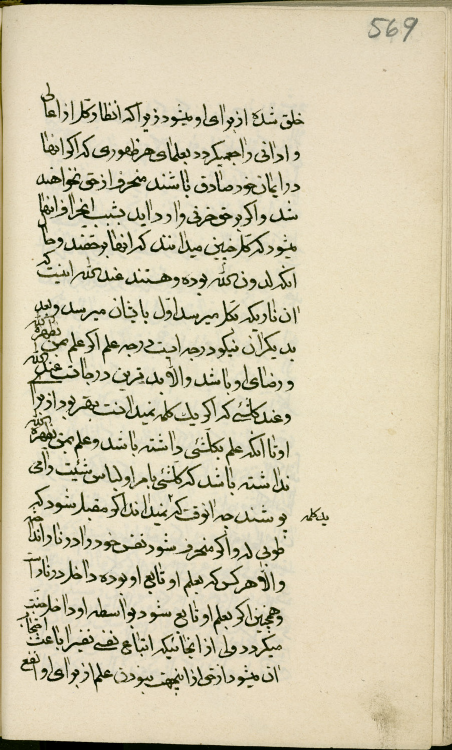 569
خلق شده از برای او میشود زیرا که انظار کل از اعالی
و ادانی راجع میگردد بعلمای هر ظهوری که اگر آنها
در ایمان خود صادق باشند منحرف از حق نخواهند
شد و اگر بر حق حزنی وارد آید بسبب انحراف آنها
میشود که کل چنین میدانند که آنها بر حقند و حال
آنکه لدون الله بوده و هستند عند الله اینست که
آن نار که بکل میرسد اول بایشان میرسد و بعد
بدیگران نیکو درجه ایست درجه علم اگر علم بمن یظهره الله
و رضای او باشد والا بدترین درجات است عند الله
و عند کلشیء که اگر یک کلمه نمیدانست بهتر بود از برای
او تا آنکه علم بکلشیء داشته باشد و علم بمن یظهره الله
نداشته باشد که کلشیء بامر او لباس شیئیت را می
پوشند چه آنوقت که نمیداند اگر مقبل شود یک کلمه
طوبی له و اگر منحرف شود نفس خود را در نار انداخته
والا هر کس که بعلم او تابع او بوده داخل در نار است
و همچنین اگر بعلم او تابع شود بواسطه او داخل جنت
میگردد ولی از آنجائیکه اتباع نفسی نفسی را باعث احتجاب
آن میشود از حق از این جهت نبودن علم از برای او انفع